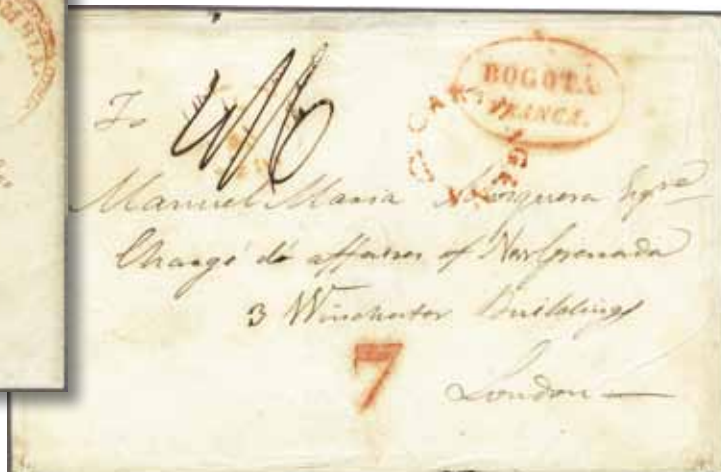 BOGOTÁ
FRANCA.
CARTAGENA
To
4/6
Manuel Maria Esqre
Chargé de affaires of New Grenada
3 Winchester Buildings
7
London